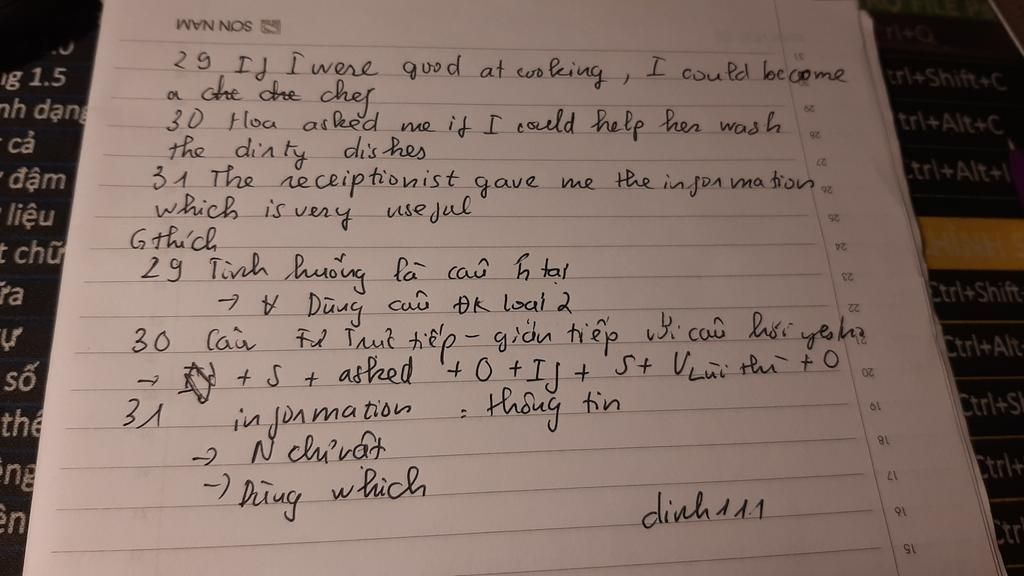 SON NAM
29 If I were good at cooking, I could become
a che che chef
30 Hoa asked me if I could help her wash
the dirty dishes
31 The receiptionist gave me the information
which is very useful
G thích
29 Tình huống là câu h tại
→ Dùng câu ĐK loại 2
30 Câu Trực tiếp - gián tiếp với câu hỏi yes
→ + S + asked + O + If + S + V Lùi thì + O
31 information : thông tin
→ N chỉ vật
→ Dùng which
dinh111
ng 1.5
nh dạng
cả
đậm
liệu
t chữ
số
trl+Q
trl+Shift+C
trl+Alt+C
Ctrl+Alt+I
Ctrl+Shift
Ctrl+Alt
31
29
28
27
26
25
24
23
22
20
19
18
17
16
15